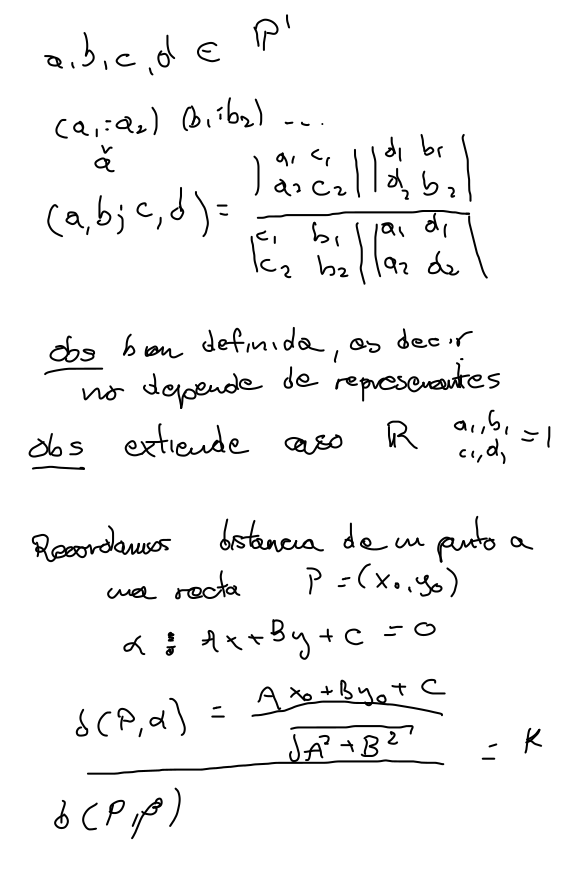 a, b, c, d ∈ ℙ¹
(a₁:a₂) (b₁:b₂) ...
ǎ
(a, b; c, d) = |a₁ c₁; a₂ c₂| |d₁ b₁; d₂ b₂| / |c₁ b₁; c₂ b₂| |a₁ d₁; a₂ d₂|
obs bien definida, es decir
no depende de representantes
obs extiende caso ℝ a₁, b₁ c₁, d₁ = 1
Recordamos distancia de un punto a
una recta P = (x₀, y₀)
α : Ax + By + C = 0
d(P, α) = Ax₀ + By₀ + C / √A² + B²
= K
d(P, β)